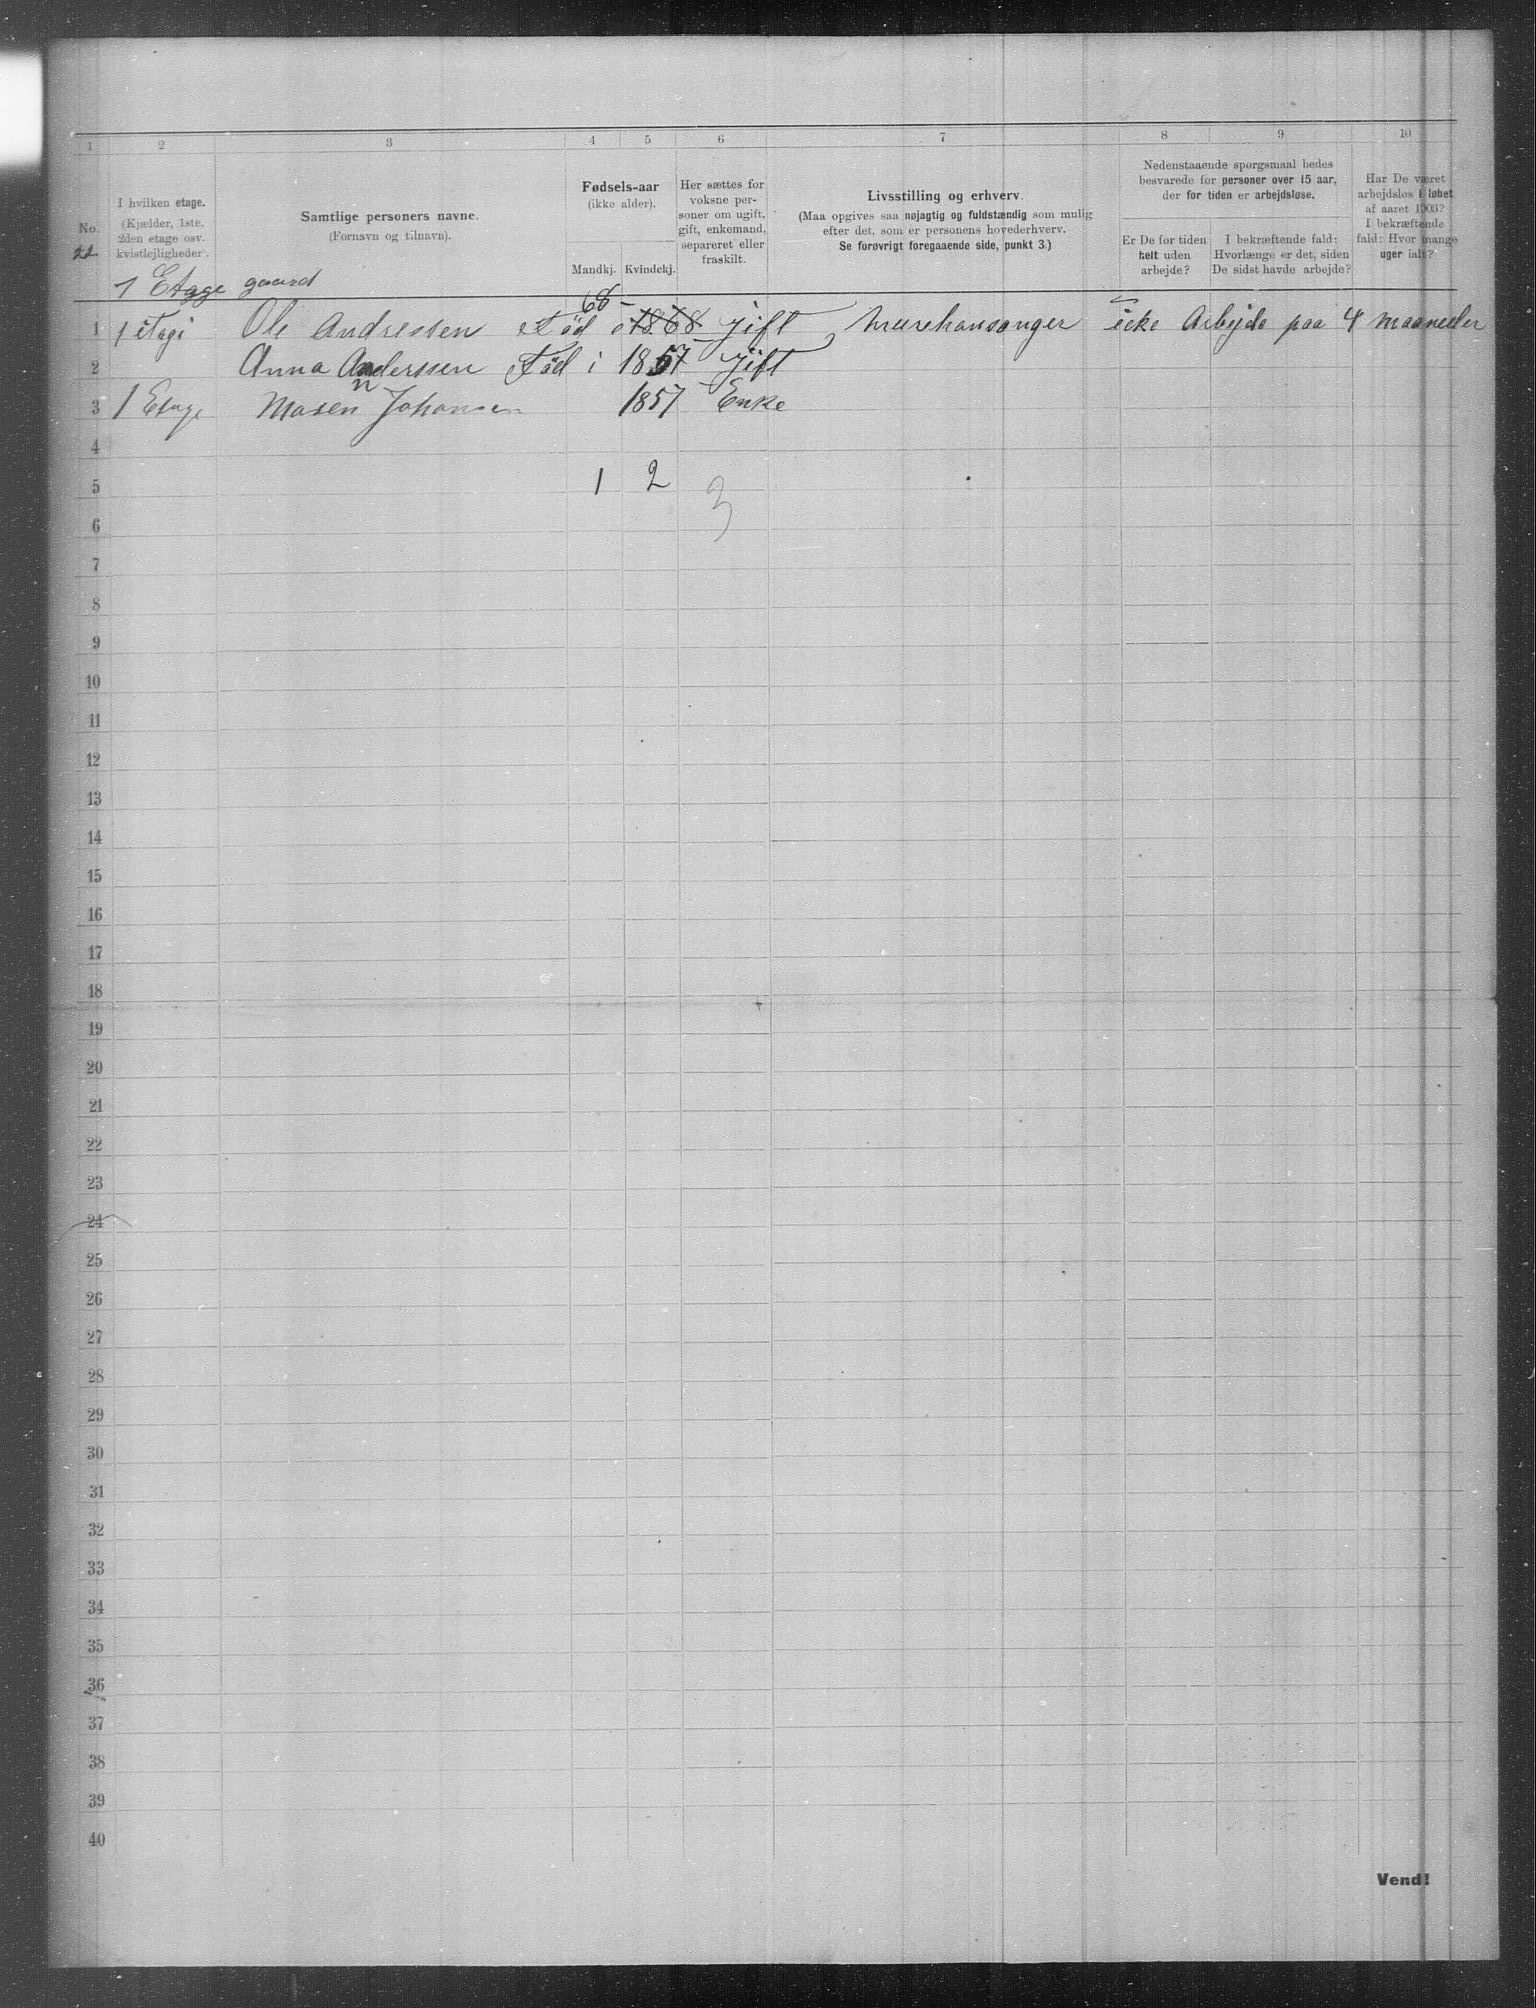 1 2 3 4 5 6 7 8 9 10
No. 22
I hvilken etage.
(Kjælder, 1ste.
2den etage osv.
kvistlejligheder).
Samtlige personers navne.
(Fornavn og tilnavn).
Fødsels-aar
(ikke alder).
Mandkj. Kvindekj.
Her sættes for
voksne per-
soner om ugift,
gift, enkemand,
separeret eller
fraskilt.
Livsstilling og erhverv.
(Maa opgives saa nøjagtig og fuldstændig som mulig
efter det, som er personens hovederhverv.
Se forøvrigt foregaaende side, punkt 3.)
Nedenstaaende spørgsmaal bedes
besvarede for personer over 15 aar,
der for tiden er arbejdsløse.
Er De for tiden
helt uden
arbejde?
I bekræftende fald:
Hvorlænge er det, siden
De sidst havde arbejde?
Har De været
arbejdsløs i løbet
af aaret 1903?
I bekræftende
fald: Hvor mange
uger ialt?
1 Etage gaard
68
1 1 Etage Ole Andressen Född i 1868 jift icke Arbejde paa 4 maaneder
2 Anna Anderssen Född i 1857 jift
3 1 Etage Johansen 1857 Enke
4
5 1 2 3
6
7
8
9
10
11
12
13
14
15
16
17
18
19
20
21
22
23
24
25
26
27
28
29
30
31
32
33
34
35
36
37
38
39
40
Vend!